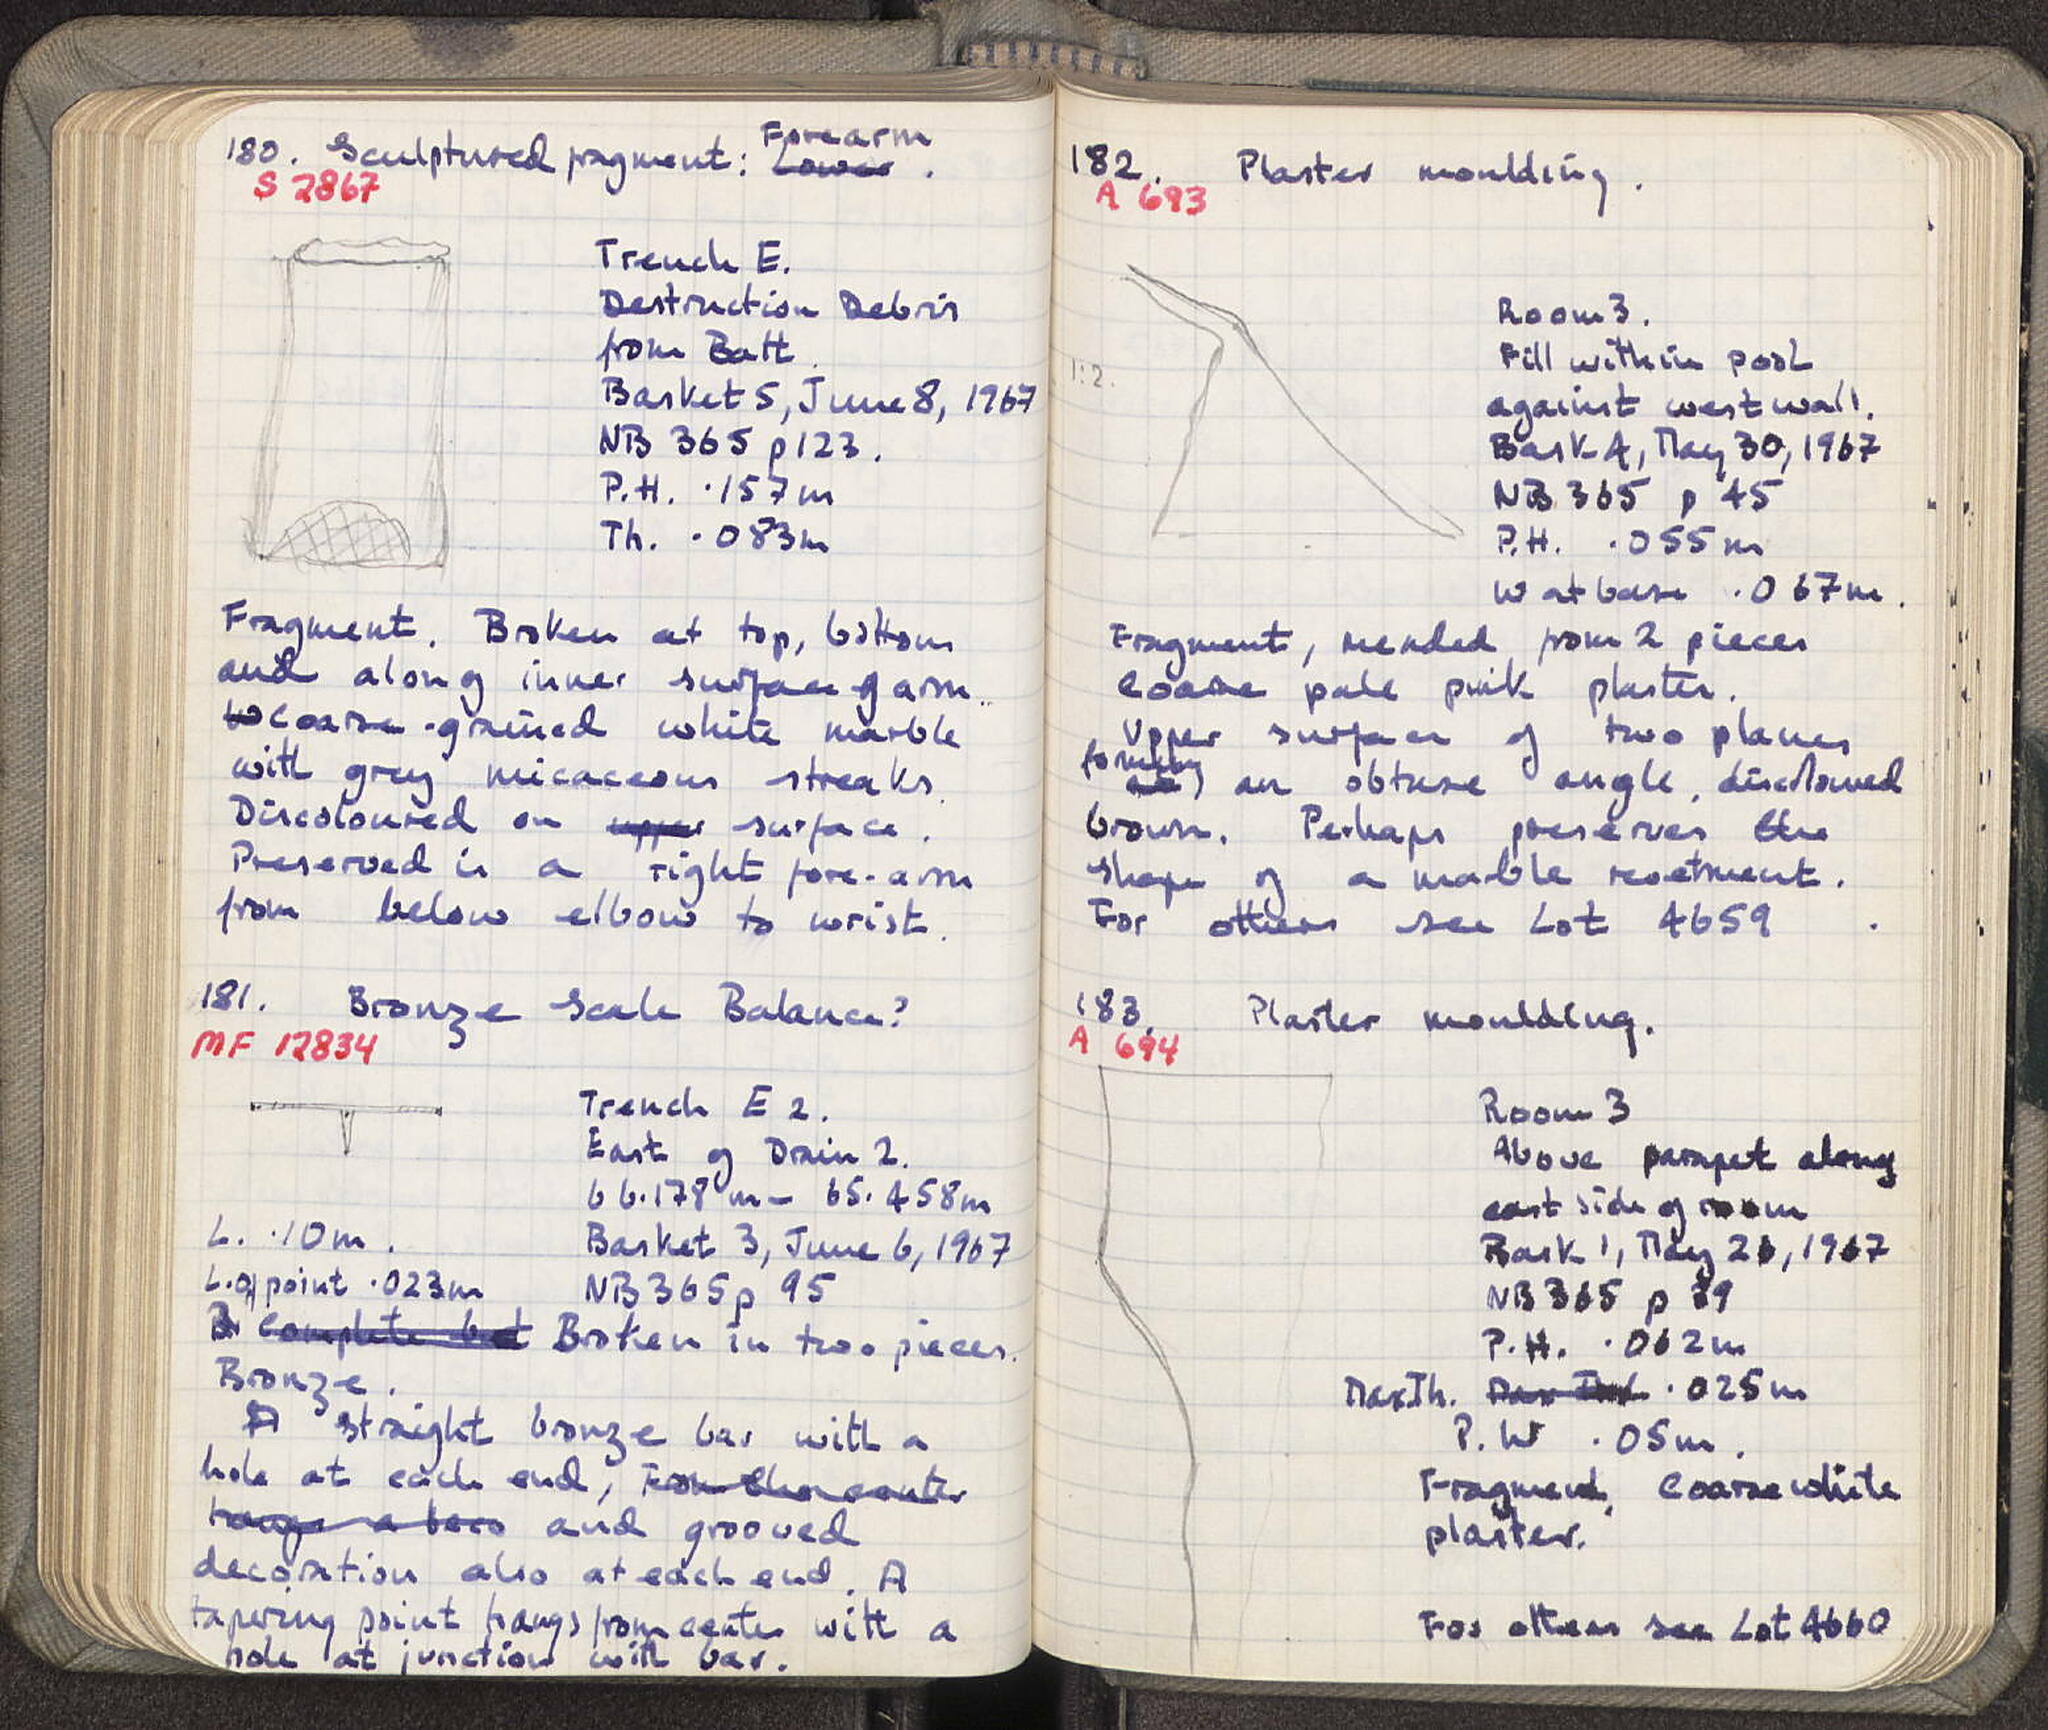 180. Sculptured fragment: Forearm Lower.
S 2867
Trench E.
Destruction Debris
from Batt.
Basket 5, June 8, 1967
NB 365 p 123.
P.H. .157m
Th. .083m
Fragment. Broken at top, bottom
and along inner surface of arm.
coarse-grained white marble
with grey micaceous streaks.
Discoloured on upper surface.
Preserved is a right fore-arm
from below elbow to wrist.
181. Bronze Scale Balance?
MF 12834
Trench E 2.
East of Drain 2.
66.178m - 65.458m
L. .10m. Basket 3, June 6, 1967
L. of point .023m NB 365 p 95
complete but Broken in two pieces.
Bronze.
A straight bronze bar with a
hole at each end, From the center
hangs a and grooved
decoration also at each end. A
tapering point hangs from center with a
hole at junction with bar.
182. Plaster moulding.
A 693
1:2.
Room 3.
Fill within pool
against west wall.
Bask 4, May 30, 1967
NB 365 p 45
P.H. .055m
W at base .067m.
Fragment, mended from 2 pieces
Coarse pale pink plaster.
Upper surface of two planes
forming an obtuse angle, discoloured
brown. Perhaps preserves the
shape of a marble revetment.
For others see Lot 4659.
183. Plaster moulding.
A 694
Room 3
Above parapet along
east side of room
Bask 1, May 26, 1967
NB 365 p 39
P.H. .062m
Max Th. .025m
P.W .05m.
Fragment, Coarse white
plaster.
For others see Lot 4660